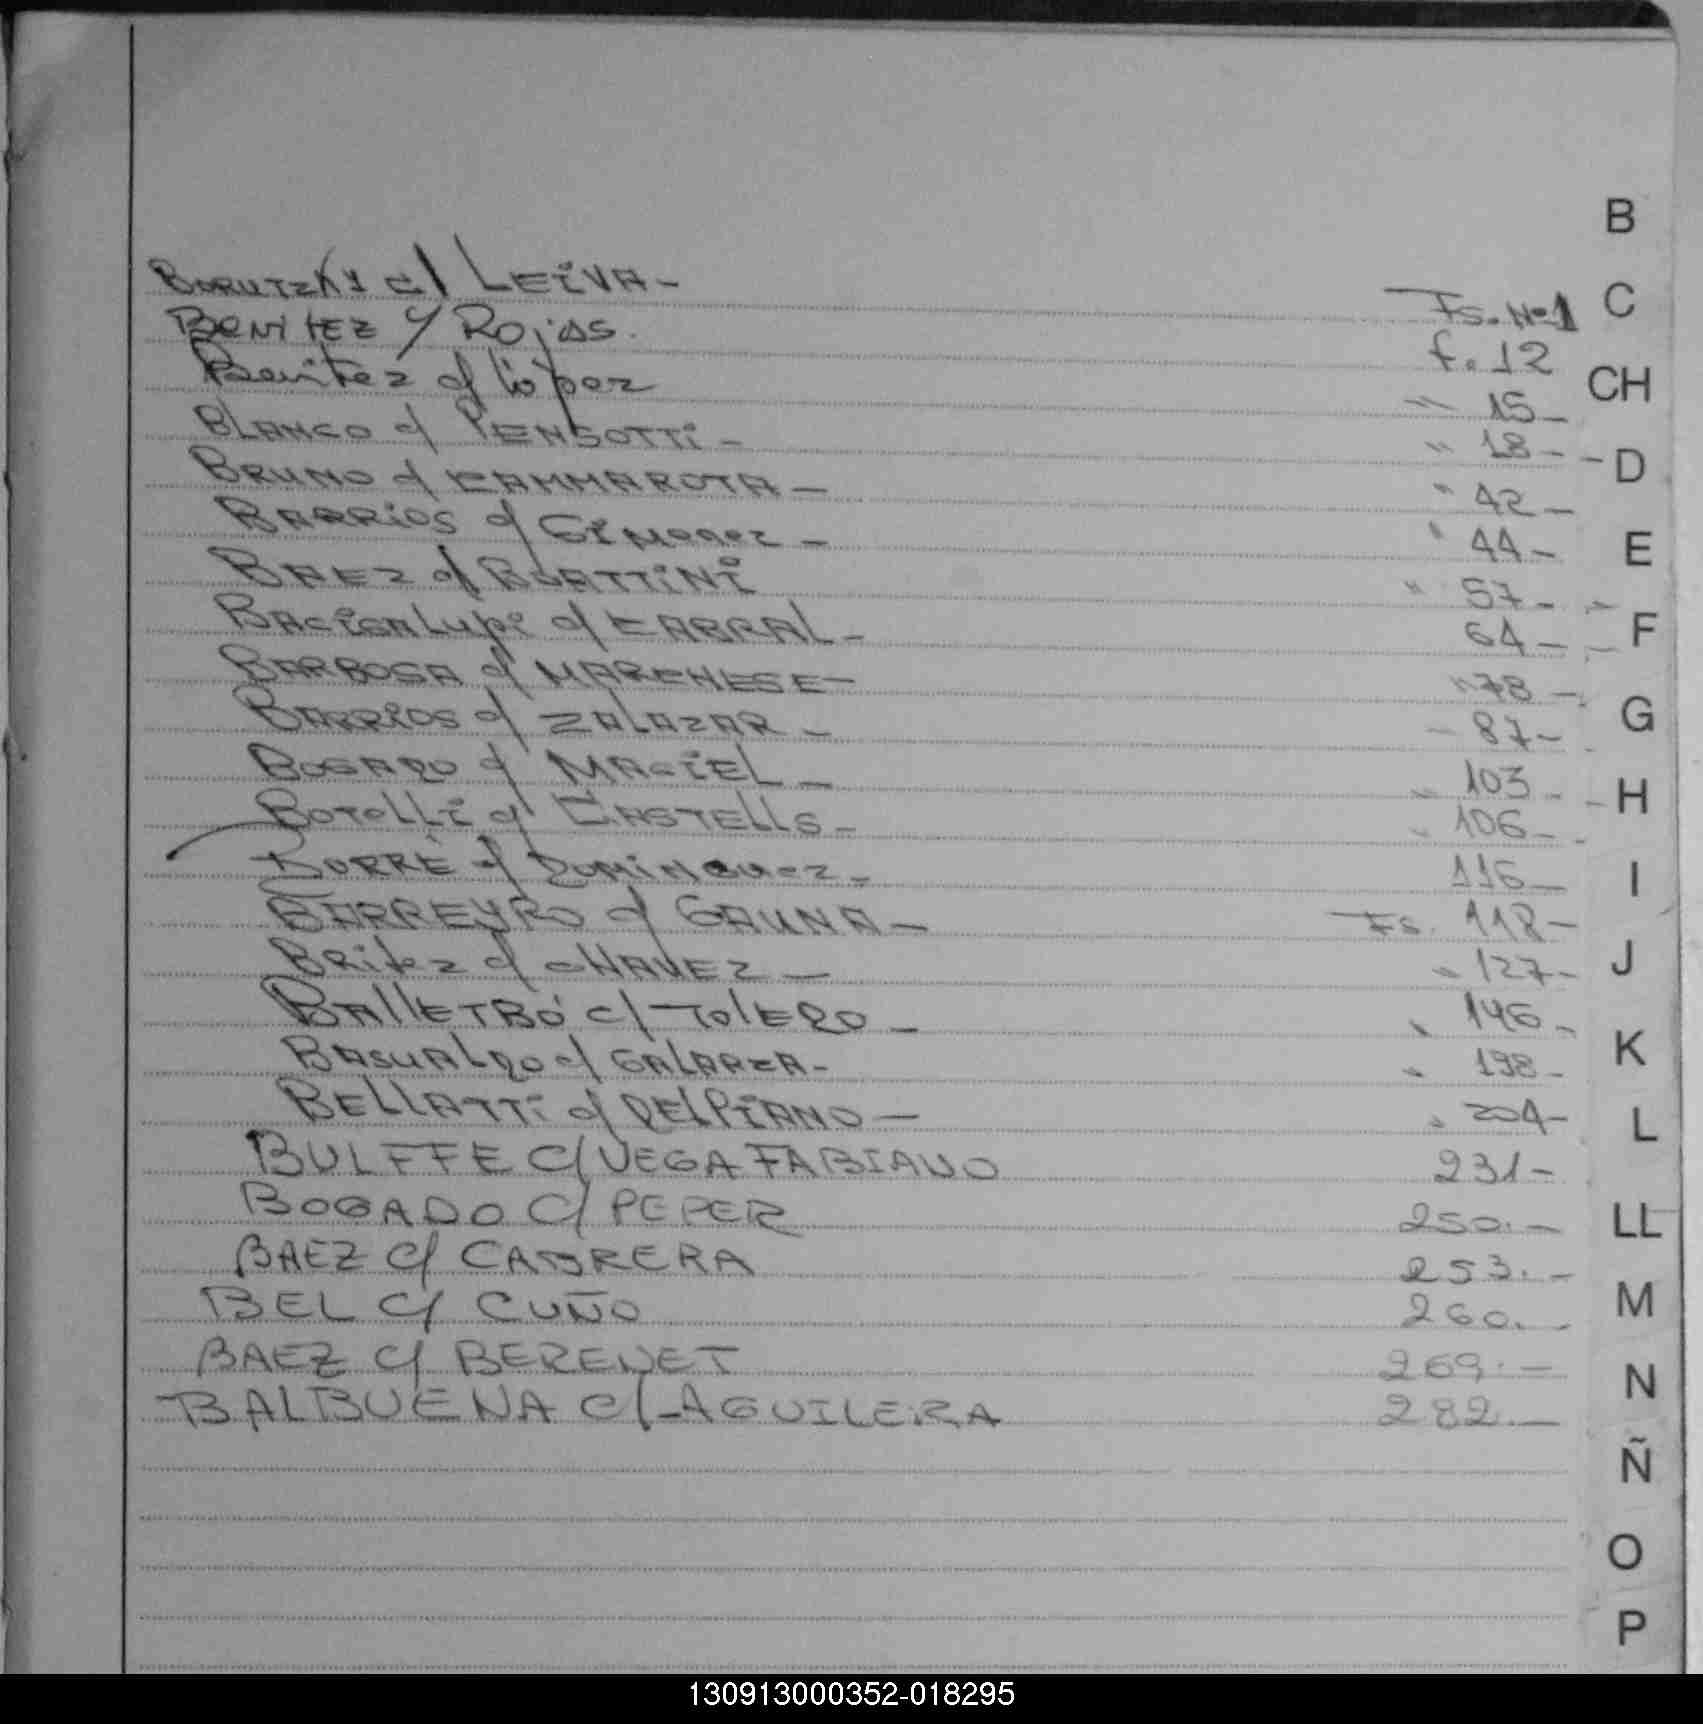 BORUTZKY c/ LEIVA - Fs. Nº 1
BENITEZ c/ ROJAS. f. 12
Benitez c/ López " 15 -
BLANCO c/ PENSOTTI - " 18 -
BRUNO c/ CAMMAROTA - " 42 -
BARRIOS c/ GIMENEZ - " 44 -
BAEZ c/ BOATTINI " 57 -
BACIGALUPI c/ CABRAL - 64 -
BARBOSA c/ MARCHESE - " 78 -
BARRIOS c/ ZALAZAR - " 87 -
BOGADO c/ MACIEL - " 103 -
BOTELLI c/ CASTELLS - " 106 -
BORRÉ c/ DOMINGUEZ - 116 -
BARREYRO c/ GAUNA - Fs. 118 -
BRITEZ c/ CHAVEZ - " 127 -
BALLETBÓ c/ TOLEDO - " 146 -
BASUALDO c/ GALARZA - " 198 -
BELLATTI c/ DELPIANO - " 204 -
BULFFE C/ VEGA FABIANO 231 -
BOGADO C/ PEPER 250. -
BAEZ C/ CABRERA 253. -
BEL C/ CUÑO 260. -
BAEZ C/ BERENET 269. -
BALBUENA C/ AGUILERA 282. -
B
C
CH
D
E
F
G
H
I
J
K
L
LL
M
N
Ñ
O
P
130913000352-018295